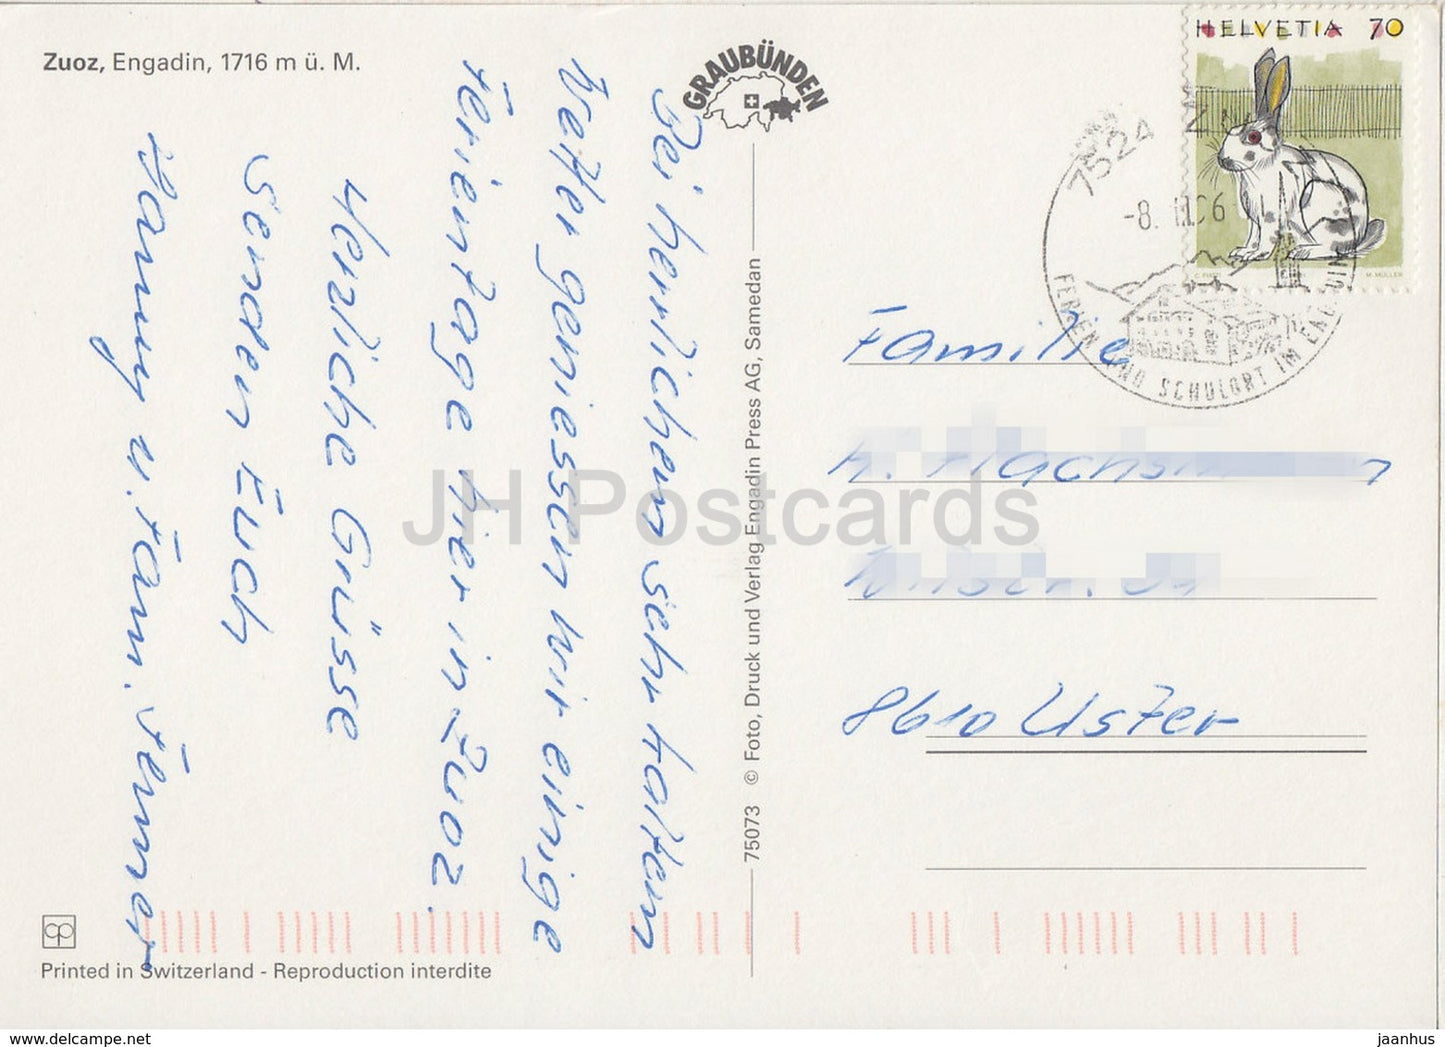 Zuoz, Engadin, 1716 m ü. M.
GRAUBÜNDEN
HELVETIA 70
M. MÜLLER
7524
-8. 06
FERIEN UND SCHULORT IM ENGADIN
Bei herrlichem sehr kaltem
Wetter geniessen wir einige
Ferientage hier in Zuoz.
Herzliche Grüsse
senden Euch
Hanny u. Fam. Fenner
75073 © Foto, Druck und Verlag Engadin Press AG, Samedan
Familie
8610 Uster
JH Postcards
cp
Printed in Switzerland - Reproduction interdite
jaanhus